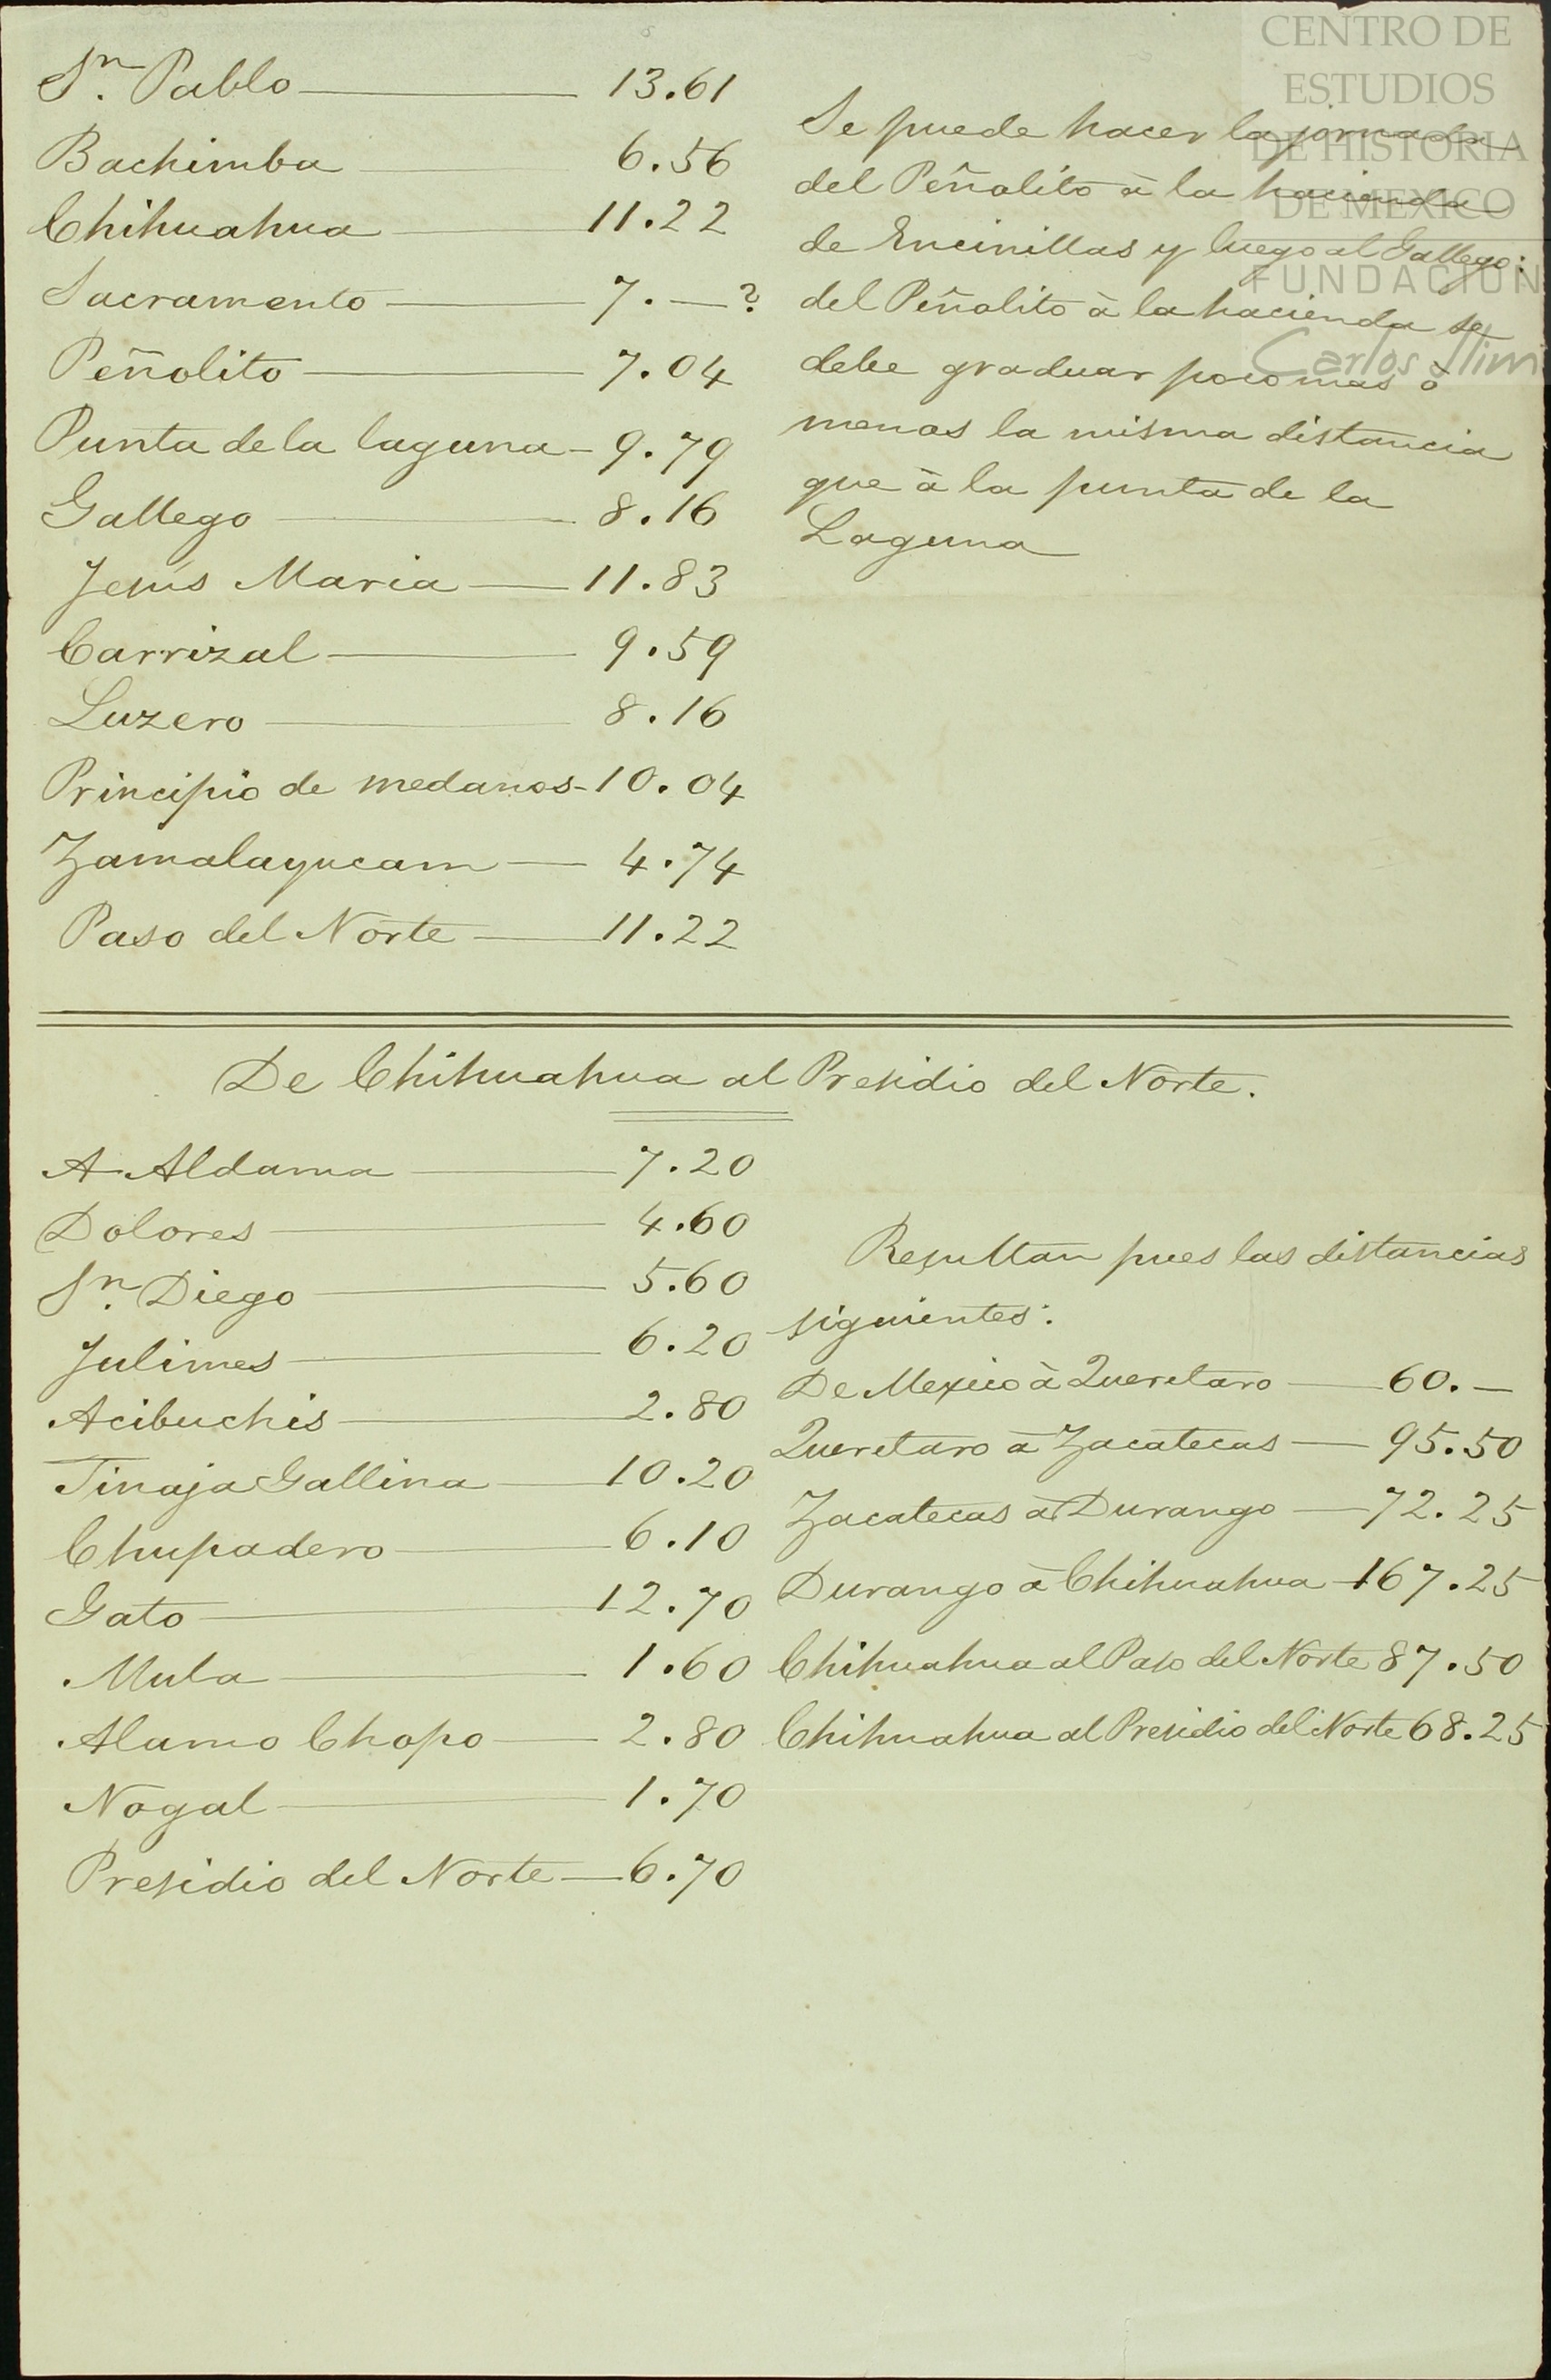 Sn. Pablo 13.61
Bachimba 6.56
Chihuahua 11.22
Sacramento 7.—?
Peñolito 7.04
Punta de la laguna 9.79
Gallego 8.16
Jesús Maria 11.83
Carrizal 9.59
Luzero 8.16
Principio de medanos 10.04
Zamalayucam 4.74
Paso del Norte 11.22
Se puede hacer la jornada
del Peñolito à la hacienda
de Encinillas y luego al Gallego:
del Peñolito à la hacienda se
debe graduar poco mas ò
menos la misma distancia
que à la punta de la
Laguna
De Chihuahua al Presidio del Norte.
A Aldama 7.20
Dolores 4.60
Sn. Diego 5.60
Julimes 6.20
Acibuchis 2.80
Tinaja Gallina 10.20
Chupadero 6.10
Gato 12.70
Mula 1.60
Alamo Chopo 2.80
Nogal 1.70
Presidio del Norte 6.70
Resultan pues las distancias
siguientes:
De Mexico à Queretaro 60.—
Queretaro à Zacatecas 95.50
Zacatecas à Durango 72.25
Durango à Chihuahua 167.25
Chihuahua al Paso del Norte 87.50
Chihuahua al Presidio del Norte 68.25
CENTRO DE
ESTUDIOS
DE HISTORIA
DE MEXICO
FUNDACION
Carlos Slim